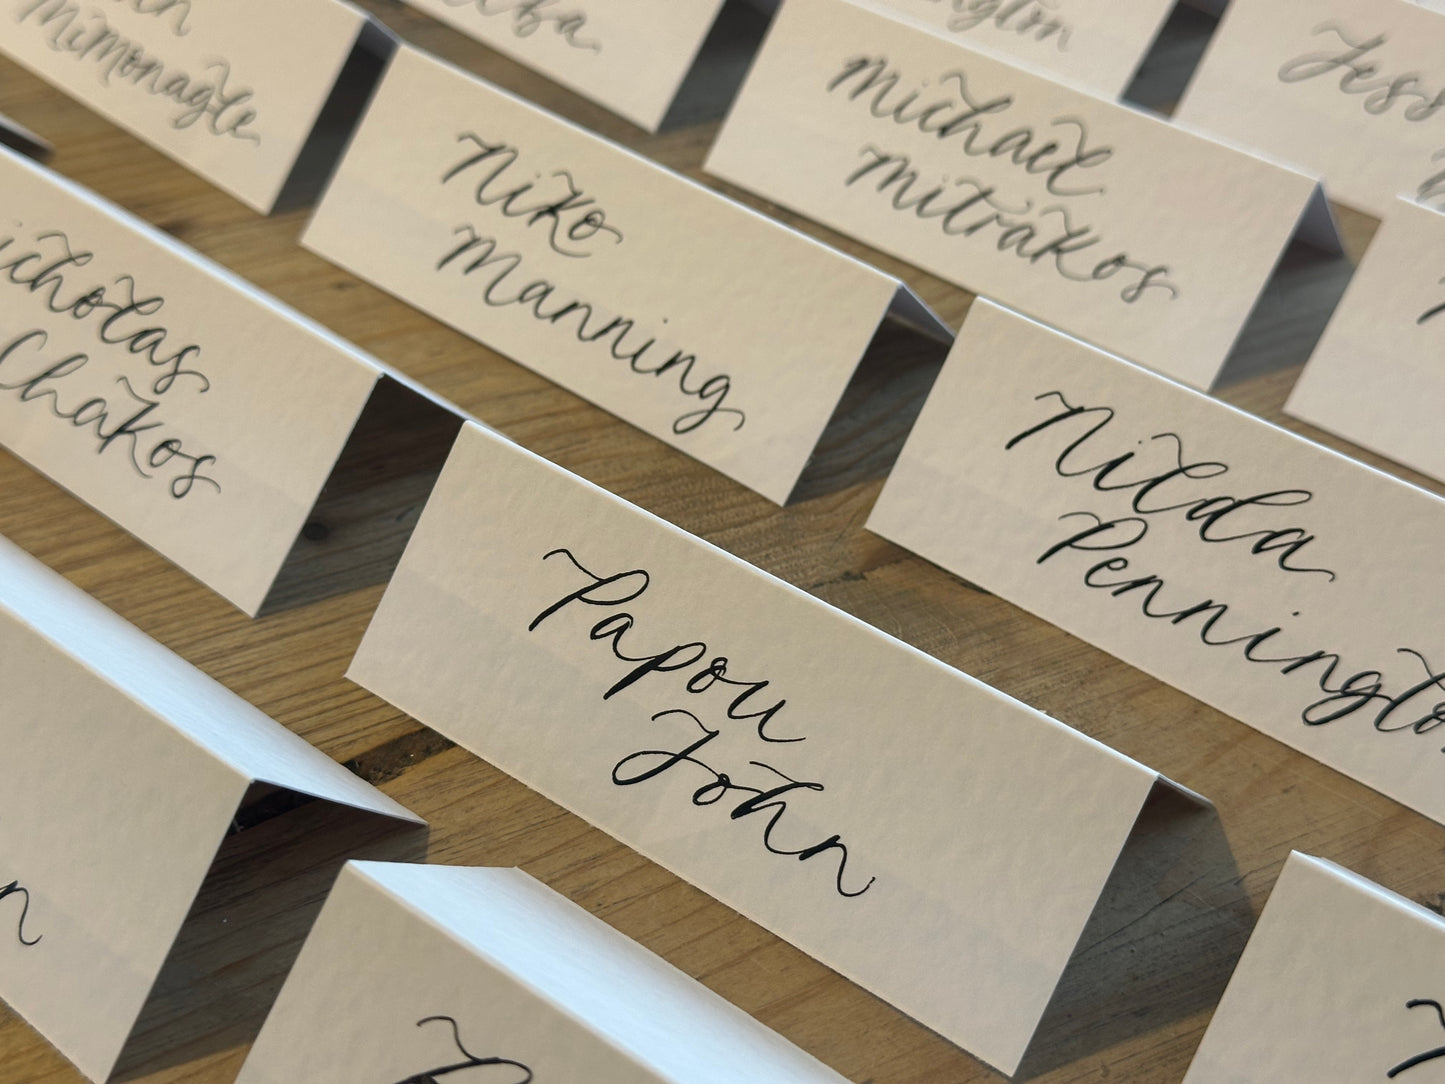 MiMonagle
Michael
Mitrakos
Niko
Manning
Nicholas
Chakos
Nilda
Pennington
Papou
John